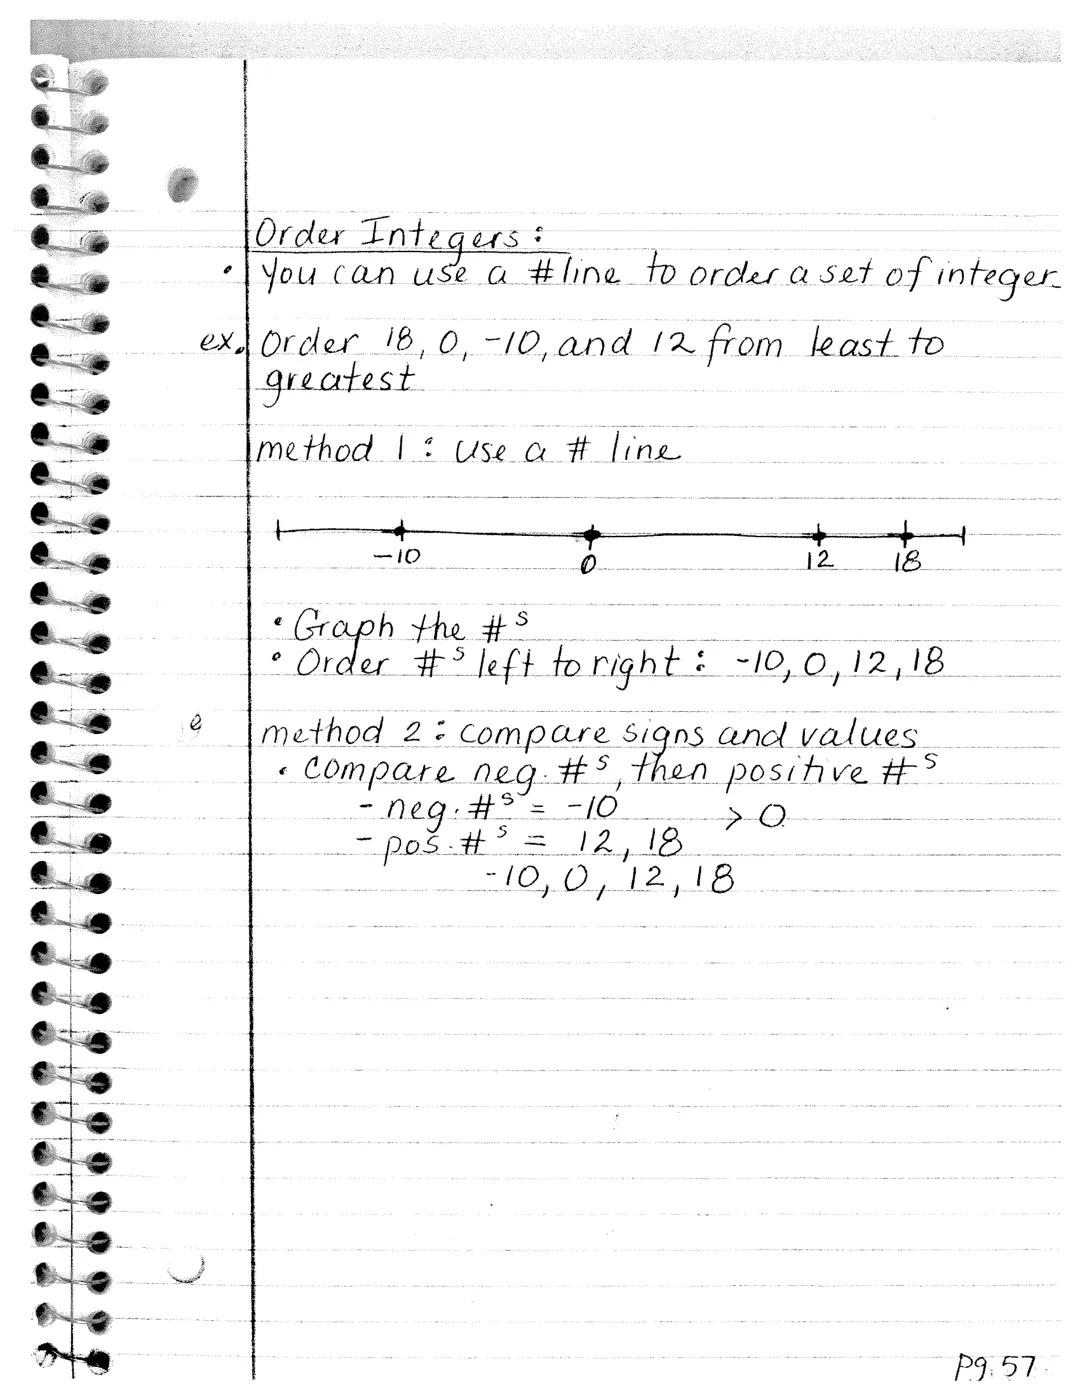 Order Integers:
• You can use a # line to order a set of integer.
ex. Order 18, 0, -10, and 12 from least to
greatest
method 1: Use a # line
-10 0 12 18
• Graph the #s
• Order #s left to right: -10, 0, 12, 18
e
method 2: compare signs and values
• compare neg. #s, then positive #s
- neg. #s = -10 > 0
- pos. #s = 12, 18
-10, 0, 12, 18
Pg. 57